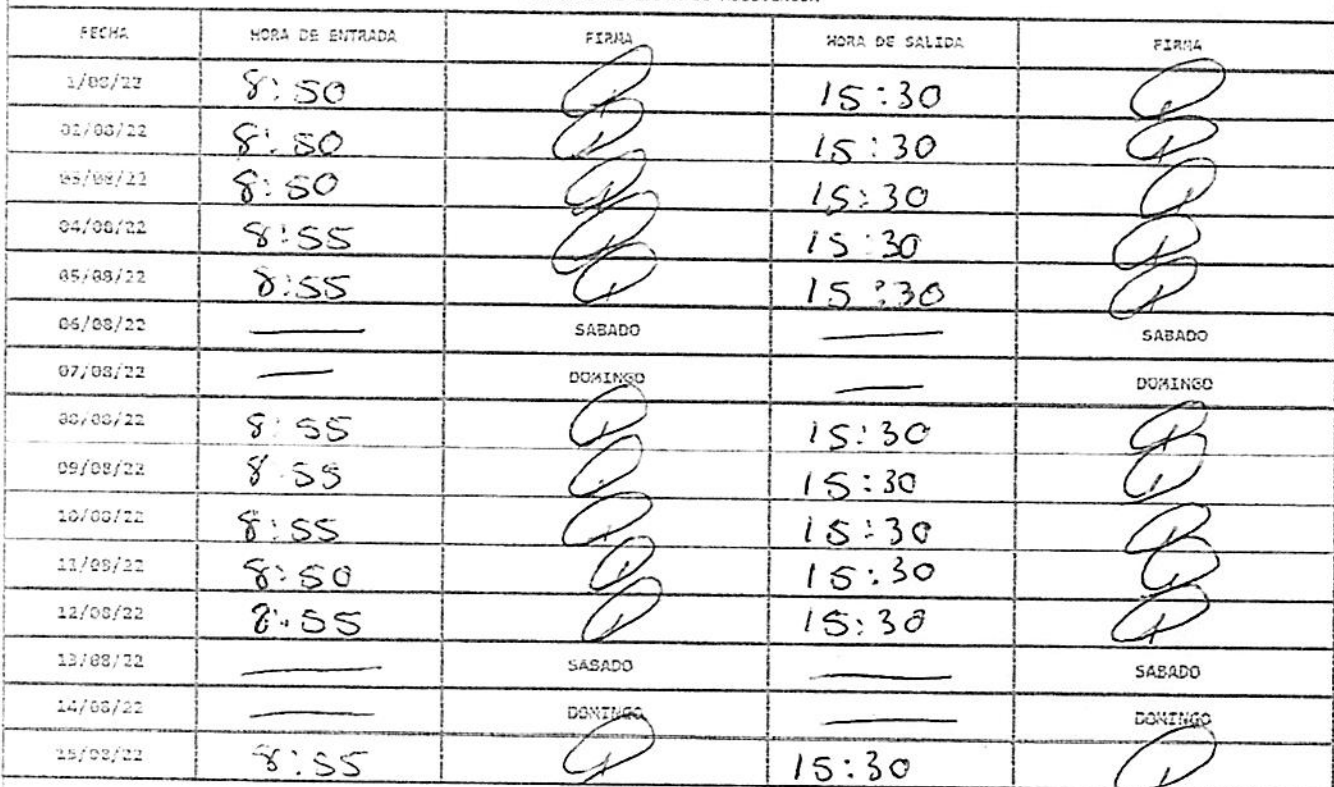 FECHA HORA DE ENTRADA FIRMA HORA DE SALIDA FIRMA
1/08/22 8:50 15:30
02/08/22 8:50 15:30
03/08/22 8:50 15:30
04/08/22 8:55 15:30
05/08/22 8:55 15:30
06/08/22 SABADO SABADO
07/08/22 DOMINGO DOMINGO
08/08/22 8:55 15:30
09/08/22 8:55 15:30
10/08/22 8:55 15:30
11/08/22 8:50 15:30
12/08/22 8:55 15:30
13/08/22 SABADO SABADO
14/08/22 DOMINGO DOMINGO
15/08/22 8:55 15:30